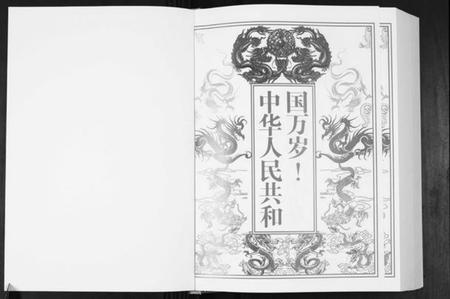 中华人民共和
国万岁！